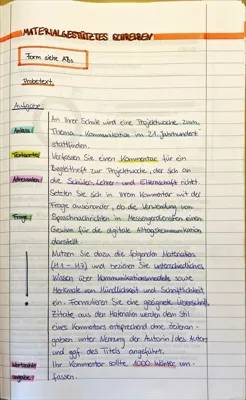 MATERIALGESTÜTZTES SCHREIBEN
Form siehe ABs
Probetext
Aufgabe:
An Ihrer Schule wird eine Projektwoche zum
Anlass Thema „Kommunikation im 21. Jahrhundert"
stattfinden.
Textsorte Verfassen Sie einen Kommentar für ein
Begleitheft zur Projektwoche, der sich an
Adressaten die Schüler-, Lehrer- und Elternschaft richtet.
Setzen Sie sich in Ihrem Kommentar mit der
Frage Frage auseinander, ob die Verwendung von
Sprachnachrichten in Messengerdiensten einen
Gewinn für die digitale Alltagskommunikation
darstellt.
Nutzen Sie dazu die folgenden Materialien
(M1 - M7) und beziehen Sie unterschiedliches
Wissen über Kommunikationsmodelle sowie
Merkmale von Mündlichkeit und Schriftlichkeit
ein. Formulieren Sie eine geeignete Überschrift.
Zitate aus den Materialien werden dem Stil
eines Kommentars entsprechend ohne Zeilenan-
gaben unter Nennung der Autorin / des Autors
und ggf. des Titels angeführt.
Wortanzahl Ihr Kommentar sollte 1000 Wörter um-
angabe fassen.